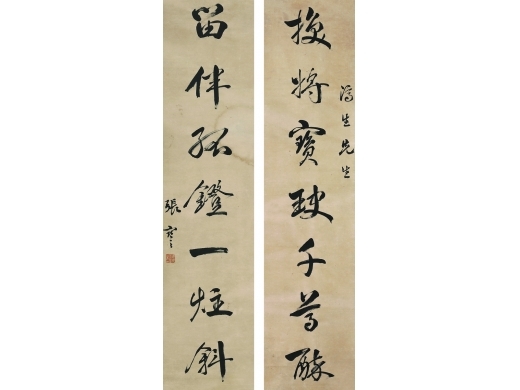 換將寶玦千尊
生先生
留伴孤鐙一炷斜
張謇